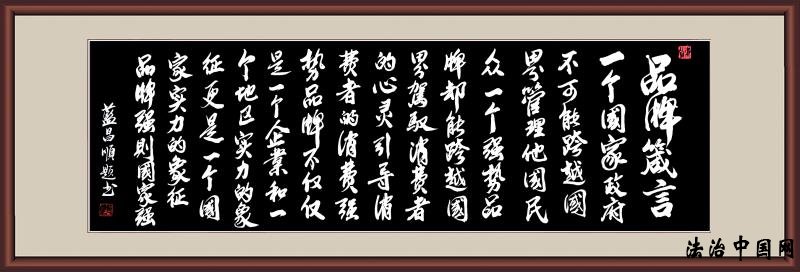 品牌箴言
一个國家政府
不可能跨越國
界管理他國民
众一个强势品
牌却能跨越國
界驾驭消费者
的心灵引导消
费者的消费强
势品牌不仅仅
是一个企業和一
个地区实力的象
征更是一个國
家实力的象征
品牌强則國家强
藍昌順题书
法治中国网